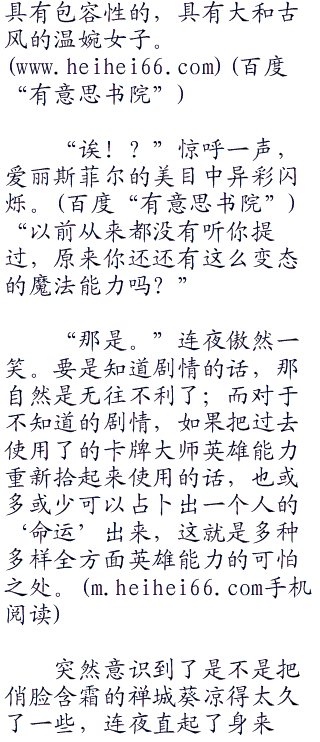 具有包容性的，具有大和古
风的温婉女子。
(www.heihei66.com)(百度
“有意思书院”)
“诶！？”惊呼一声，
爱丽斯菲尔的美目中异彩闪
烁。(百度“有意思书院”)
“以前从来都没有听你提
过，原来你还还有这么变态
的魔法能力吗？”
“那是。”连夜傲然一
笑。要是知道剧情的话，那
自然是无往不利了；而对于
不知道的剧情，如果把过去
使用了的卡牌大师英雄能力
重新拾起来使用的话，也或
多或少可以占卜出一个人的
‘命运’出来，这就是多种
多样全方面英雄能力的可怕
之处。(m.heihei66.com手机
阅读)
突然意识到了是不是把
俏脸含霜的禅城葵凉得太久
了一些，连夜直起了身来